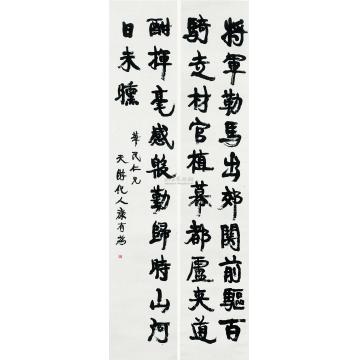 將軍勒馬出郊関前驅百
騎走材官植幕都盧夾道
酣揮毫感殷勤歸時山河
日未曛
華民仁兄
天游化人康有為